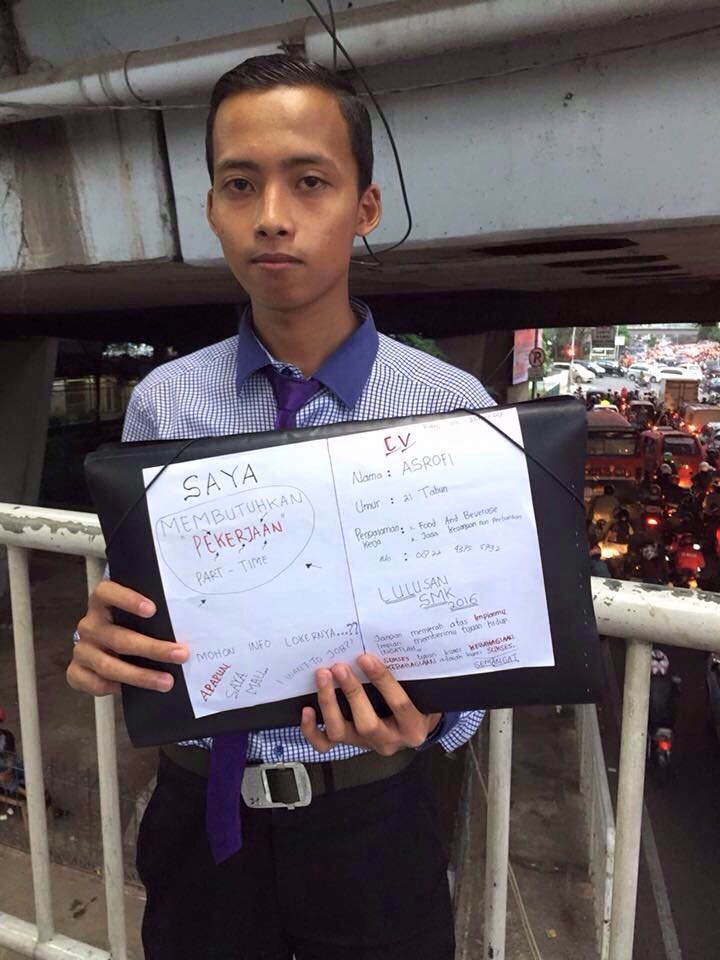 SAYA
MEMBUTUHKAN
"PEKERJAAN"
PART - TIME
MOHON INFO LOKERNYA....??
APAPUN
SAYA
MAU
I WANT TO JOB??
CV
Nama : ASROFI
Umur : 21 Tahun
Pengalaman : Food And Beverage
Kerja Jasa Keuangan dan Perbankan
LULUSAN
SMK
2016
Jangan menyerah atas Impianmu
Impian memberimu tujuan hidup
INGATLAH
SUKSES bukan kunci KEBAHAGIAAN
KEBAHAGIAAN adalah kunci SUKSES.
SEMANGAT